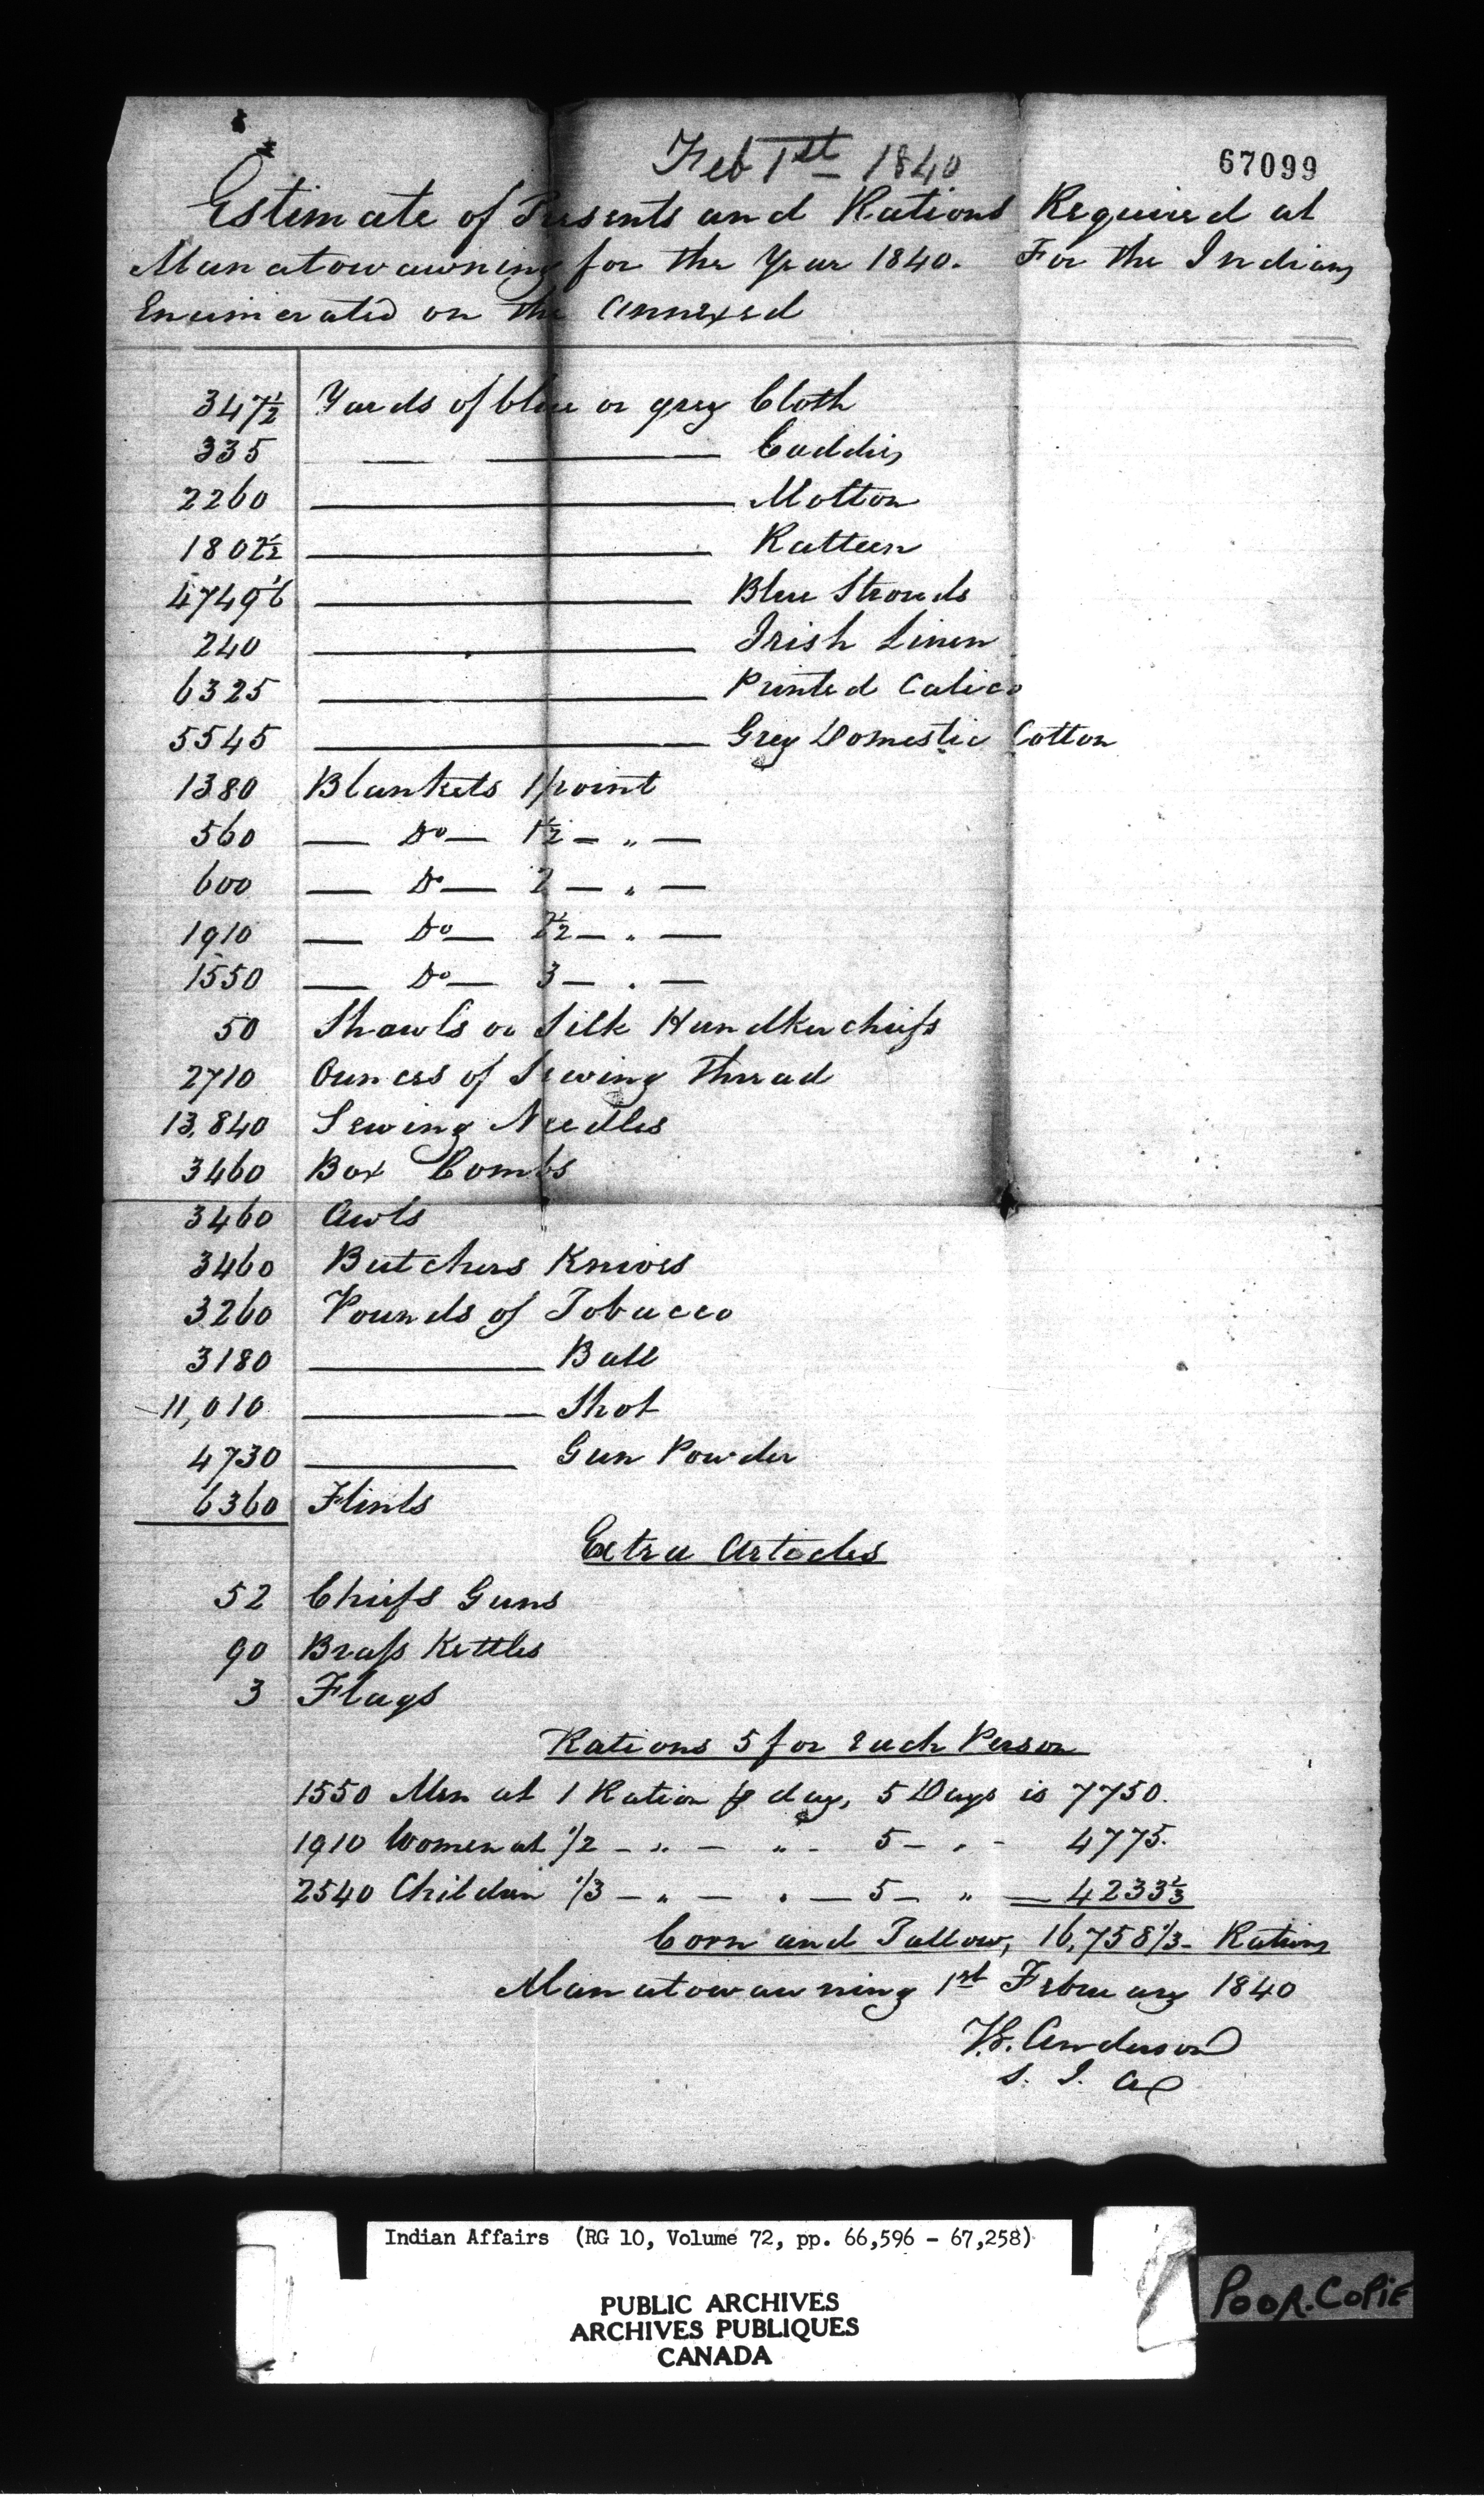 Feb 1st 1840
67099
Estimate of Presents and Rations Required at
Manatowawning for the Year 1840. For the Indians
Enumerated on the Annexed
347½ Yards of blue or grey Cloth
335 — — Caddis
2260 — Molton
1802½ — Ratteen
4749 1/6 — Blue Strouds
240 — Irish Linen
6325 — Printed Calico
5545 — Grey Domestic Cotton
1380 Blankets 1 point
560 — Do — 1½ — „ —
600 — Do — 2 — „ —
1910 — Do — 2½ — „ —
1550 — Do — 3 — „ —
50 Shawls or Silk Handkerchiefs
2710 Ounces of Sewing Thread
13,840 Sewing Needles
3460 Box Combs
3460 Awls
3460 Butchers Knives
3260 Pounds of Tobacco
3180 — Ball
11,010 — Shot
4730 — Gun Powder
6360 Flints
Extra Articles
52 Chiefs Guns
90 Brass Kettles
3 Flags
Rations 5 for Each Person
1550 Men at 1 Ration ⅌ day, 5 Days is 7750.
1910 Women at 1/2 - „ - „ - 5 - „ - 4775.
2540 Children 1/3 - „ - „ - 5 - „ - 4233⅓
Corn and Tallow, 16,758 1/3 - Rations
Manatowawning 1st February 1840
T.G. Anderson
S. I. A
Indian Affairs (RG 10, Volume 72, pp. 66,596 - 67,258)
PUBLIC ARCHIVES
ARCHIVES PUBLIQUES
CANADA
POOR.COPIE